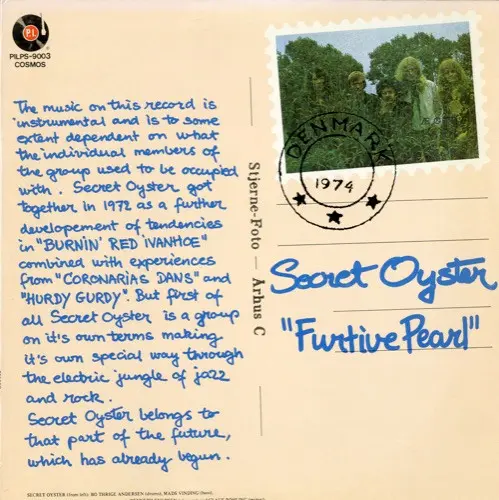 P.I.
PILPS-9003
COSMOS
The music on this record is
instrumental and is to some
extent dependent on what
the individual members of
the group used to be occupied
with. Secret Oyster got
together in 1972 as a further
developement of tendencies
in "BURNIN' RED IVANHOE"
combined with experiences
from "CORONARIAS DANS" and
"HURDY GURDY". But first of
all Secret Oyster is a group
on it's own terms making
it's own special way through
the electric jungle of jazz
and rock.
Secret Oyster belongs to
that part of the future,
which has already begun.
Stjerne-Foto — Århus C
DENMARK
1974
Secret Oyster
"Furtive Pearl"
SECRET OYSTER (from left): BO THRIGE ANDERSEN (drums), MADS VINDING (bass),